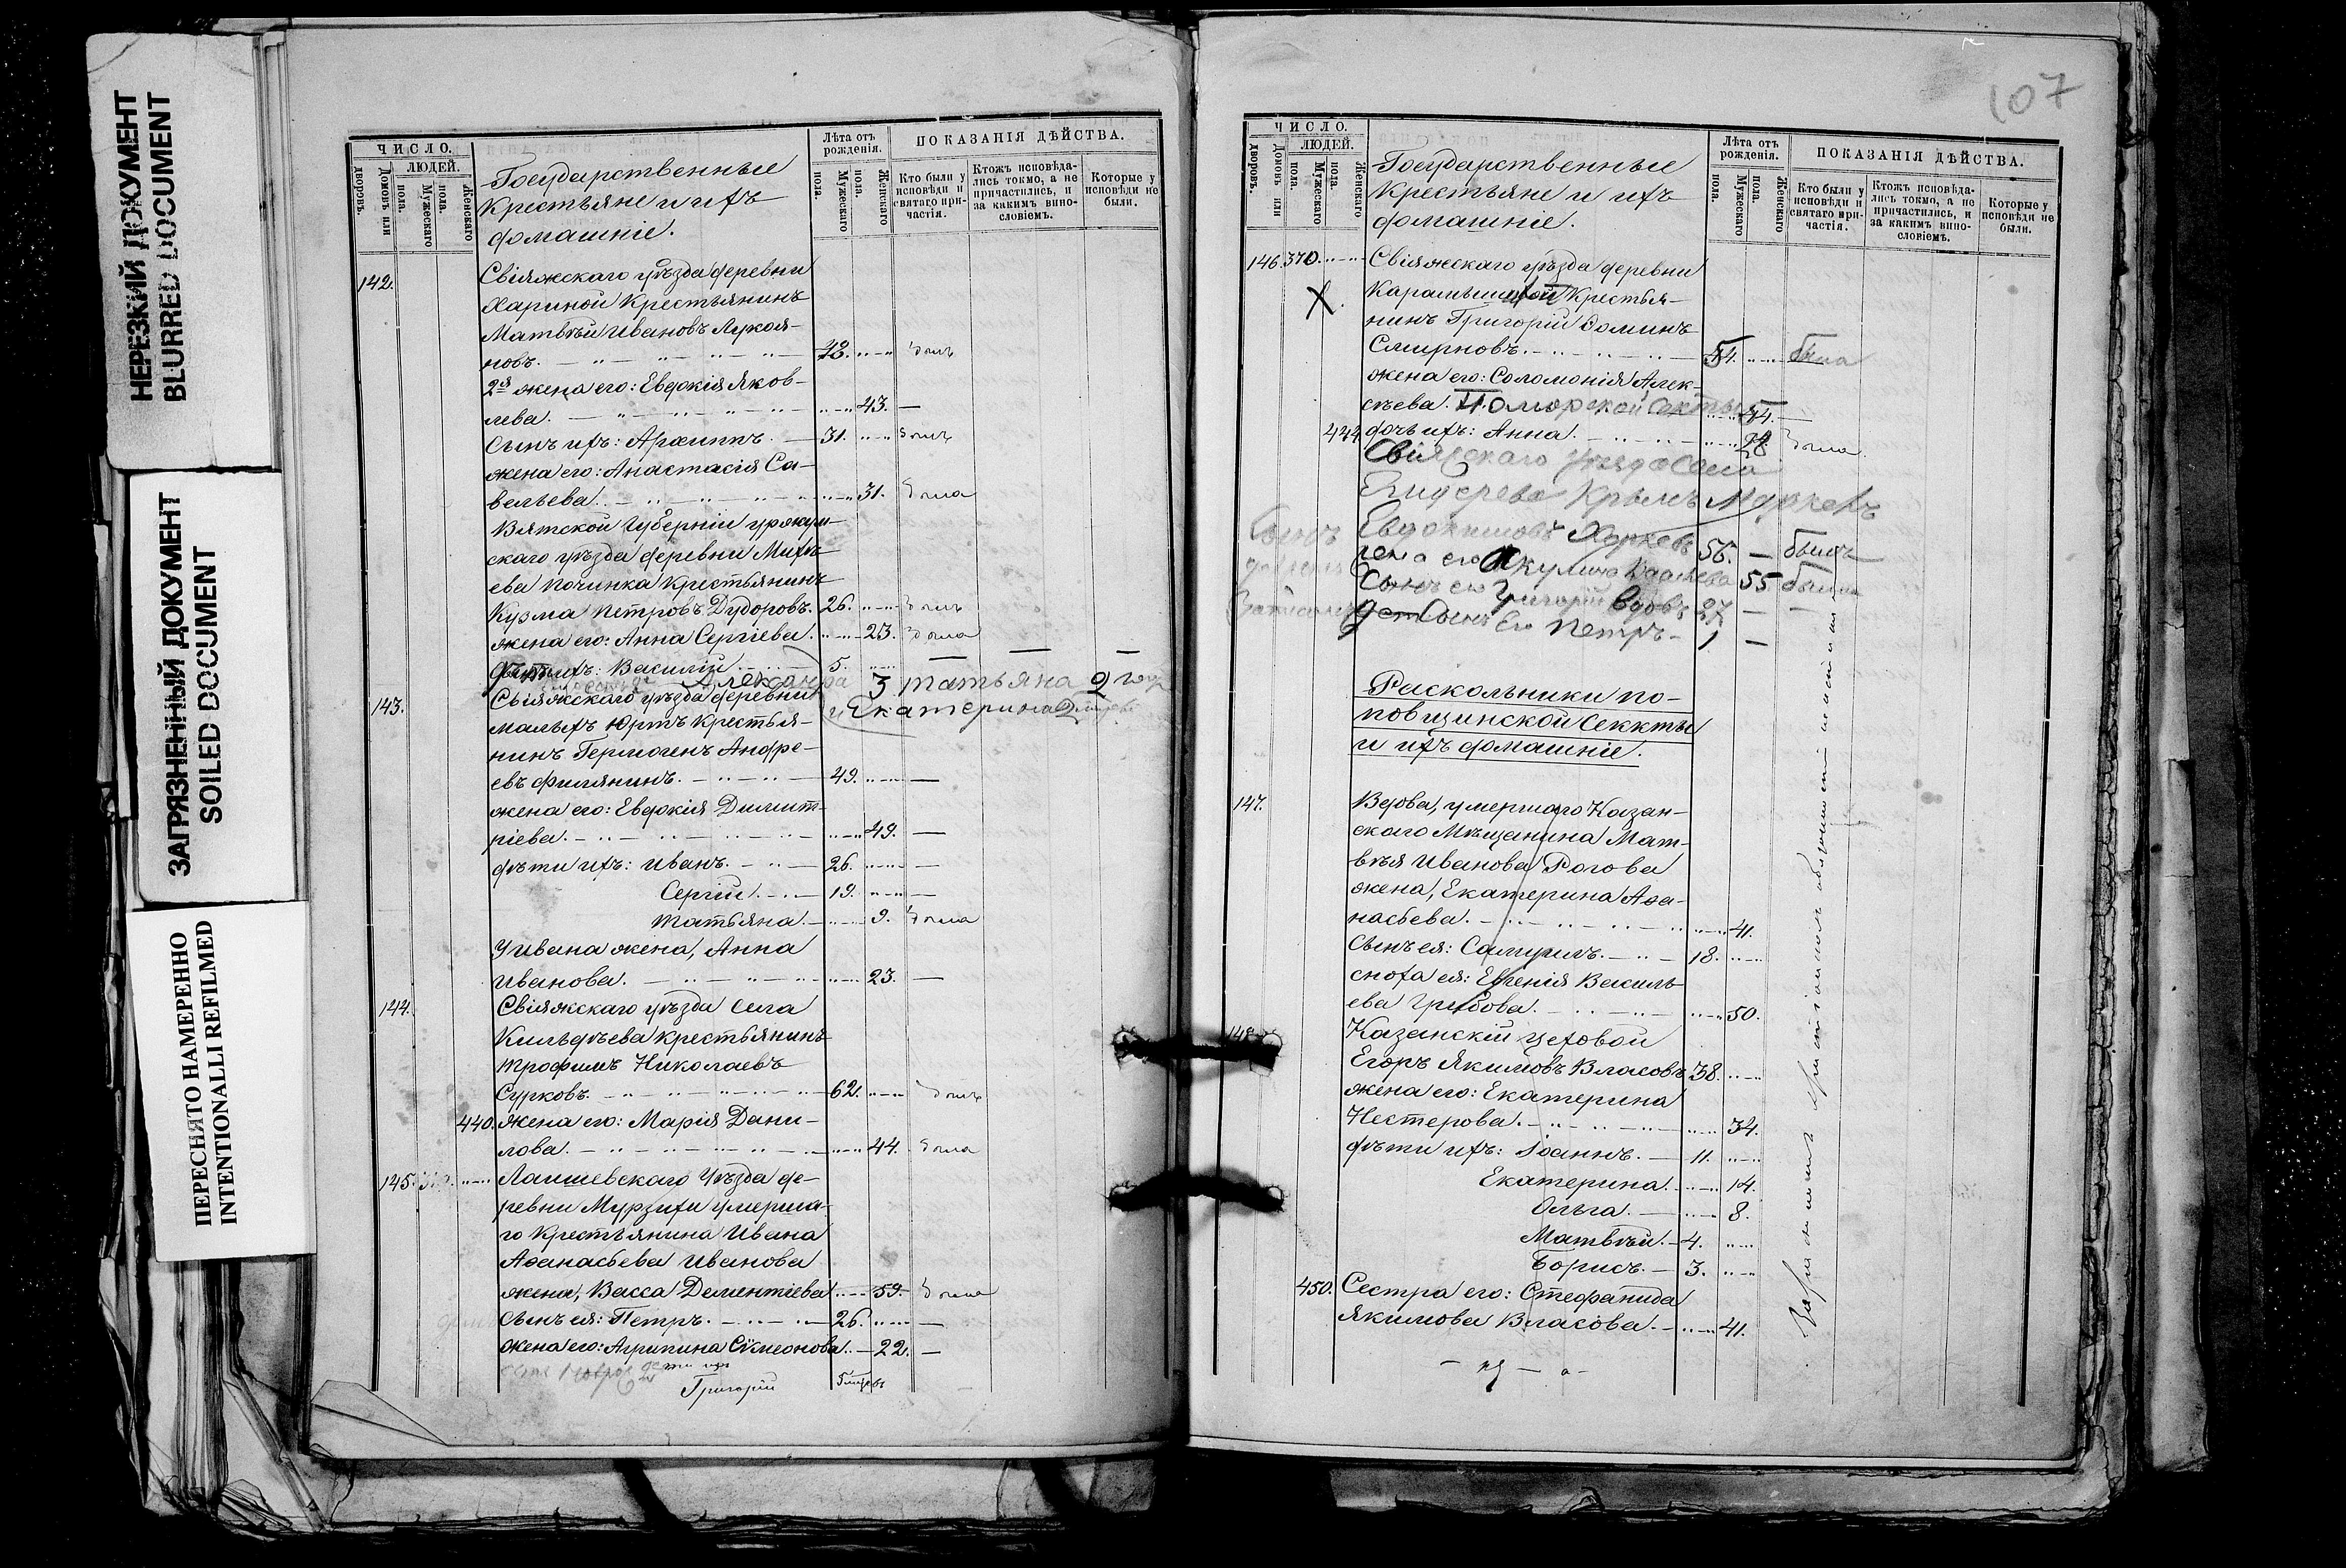 НЕРЕЗКИЙ ДОКУМЕНТ
BLURRED DOCUMENT
ЗАГРЯЗНЕННЫЙ ДОКУМЕНТ
SOILED DOCUMENT
ПЕРЕСНЯТО НАМЕРЕННО
INTENTIONALLI REFILMED
ЧИСЛО.
ЛЮДЕЙ.
Дворовъ.
Домовъ или
пола.
Мужескаго
пола.
Женскаго
Государственные
Крестьяне и ихъ
домашніе.
Лѣта отъ
рожденія.
пола.
Мужескаго
пола.
Женскаго
ПОКАЗАНІЯ ДѢЙСТВА.
Кто были у
исповѣди и
святаго при-
частія.
Ктожъ исповѣда-
лись токмо, а не
причастились, и
за какимъ вино-
словіемъ.
Которые у
исповѣди не
были.
142. Свіяжскаго уѣзда деревни
Хариной Крестьянинъ
Матвѣй Ивановъ Лукоя-
новъ. 48. былъ
2я жена его: Евдокія Яков-
лева. 43. —
Сынъ ихъ: Архиппъ. 31. былъ
жена его: Анастасія Са-
вельева. 31. была
Вятской Губерніи уржум-
скаго уѣзда деревни Михѣ-
ева Починка Крестьянинъ
Кузма Петровъ Дудоровъ. 26. былъ
жена его: Анна Сергіева. 23. была
дѣти ихъ: Василій 5. —
Александра 3 татьяна 9
и Екатерина 2
143. Свіяжскаго уѣзда деревни
малыхъ Юртъ Крестья-
нинъ Гермогенъ Андре-
евъ Филянинъ. 49. —
жена его: Евдокія Димит-
ріева. 49. —
дѣти ихъ: Иванъ. 26. —
Сергій. 19. —
татьяна. 9. была
У Ивана жена, Анна
Иванова. 23. —
144. Свіяжскаго уѣзда села
Кильдѣева крестьянинъ
трофимъ Николаевъ
Сурковъ. 62. былъ
440. жена его: Марія Дани-
лова. 44. была
145. Лаишевскаго Уѣзда де-
ревни Мурзихи умерша-
го Крестьянина Ивана
Аѳанасьева Иванова
жена, Васса Дементіева 59. была
Сынъ ея: Петръ. 26. —
жена его: Агрипина Сѵмеонова. 22. —
Григорій
107
ЧИСЛО.
ЛЮДЕЙ.
Дворовъ.
Домовъ или
пола.
Мужескаго
пола.
Женскаго
Государственные
Крестьяне и ихъ
домашніе.
Лѣта отъ
рожденія.
пола.
Мужескаго
пола.
Женскаго
ПОКАЗАНІЯ ДѢЙСТВА.
Кто были у
исповѣди и
святаго при-
частія.
Ктожъ исповѣда-
лись токмо, а не
причастились, и
за какимъ вино-
словіемъ.
Которые у
исповѣди не
были.
146. 370. Свіяжскаго уѣзда деревни
Х. Крестья-
нинъ Григорій Ѳоминъ
Смирновъ.
жена его: Соломонія Алек-
сѣева. Поморской Секты
дочь ихъ: Анна. была
Свіяжскаго уѣзда Села
Маркелъ
Евдокимовъ 56. — былъ
жена его Акулина 55 была
Сынъ его Григорій вдовъ 27 —
Сынъ Его Петръ - 1 —
Раскольники по-
повщинской Секкты
и ихъ домашніе.
147. Вдова, умершаго Казан-
скаго Мѣщанина Мат-
вѣя Иванова Рогова
жена, Екатерина Аѳа-
насьева. 41.
Сынъ ея: Самуилъ. 18.
сноха ея: Евгенія Василь-
ева Грибова. 50.
148. Казанскій цеховой
Егоръ Якимовъ Власовъ 38.
жена его: Екатерина
Нестерова. 34.
дѣти ихъ: Іоаннъ. 11.
Екатерина. 14.
Ольга. 8.
Матвѣй. 4.
Борисъ. 3.
450. Сестра его: Стефанида
Якимова Власова. 41.